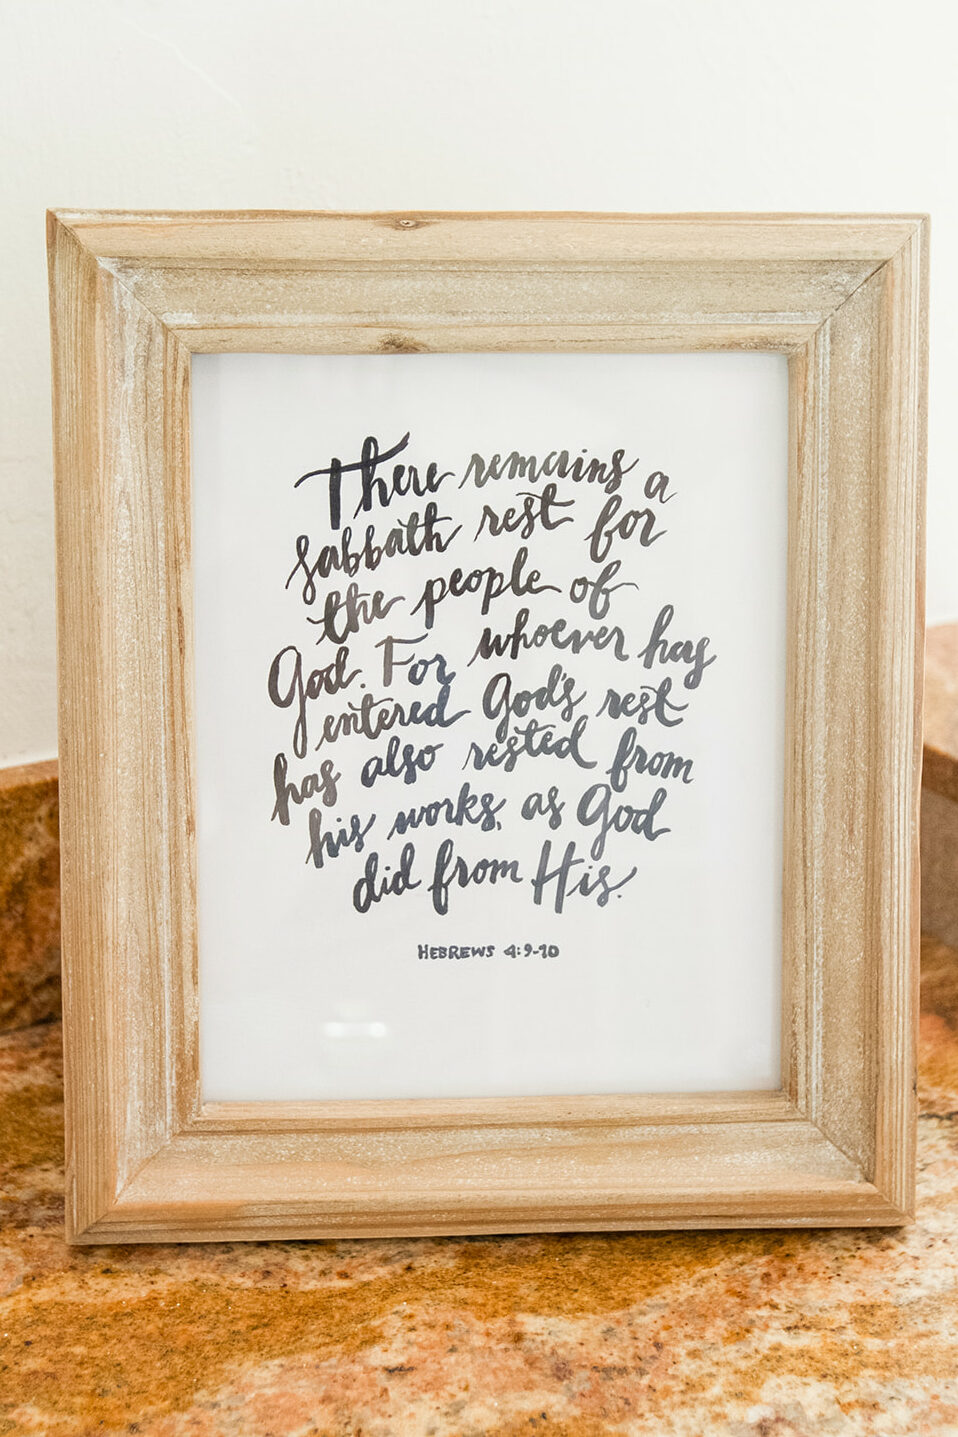 There remains a
sabbath rest for
the people of
God. For whoever has
entered God's rest
has also rested from
his works, as God
did from His.
HEBREWS 4:9-10